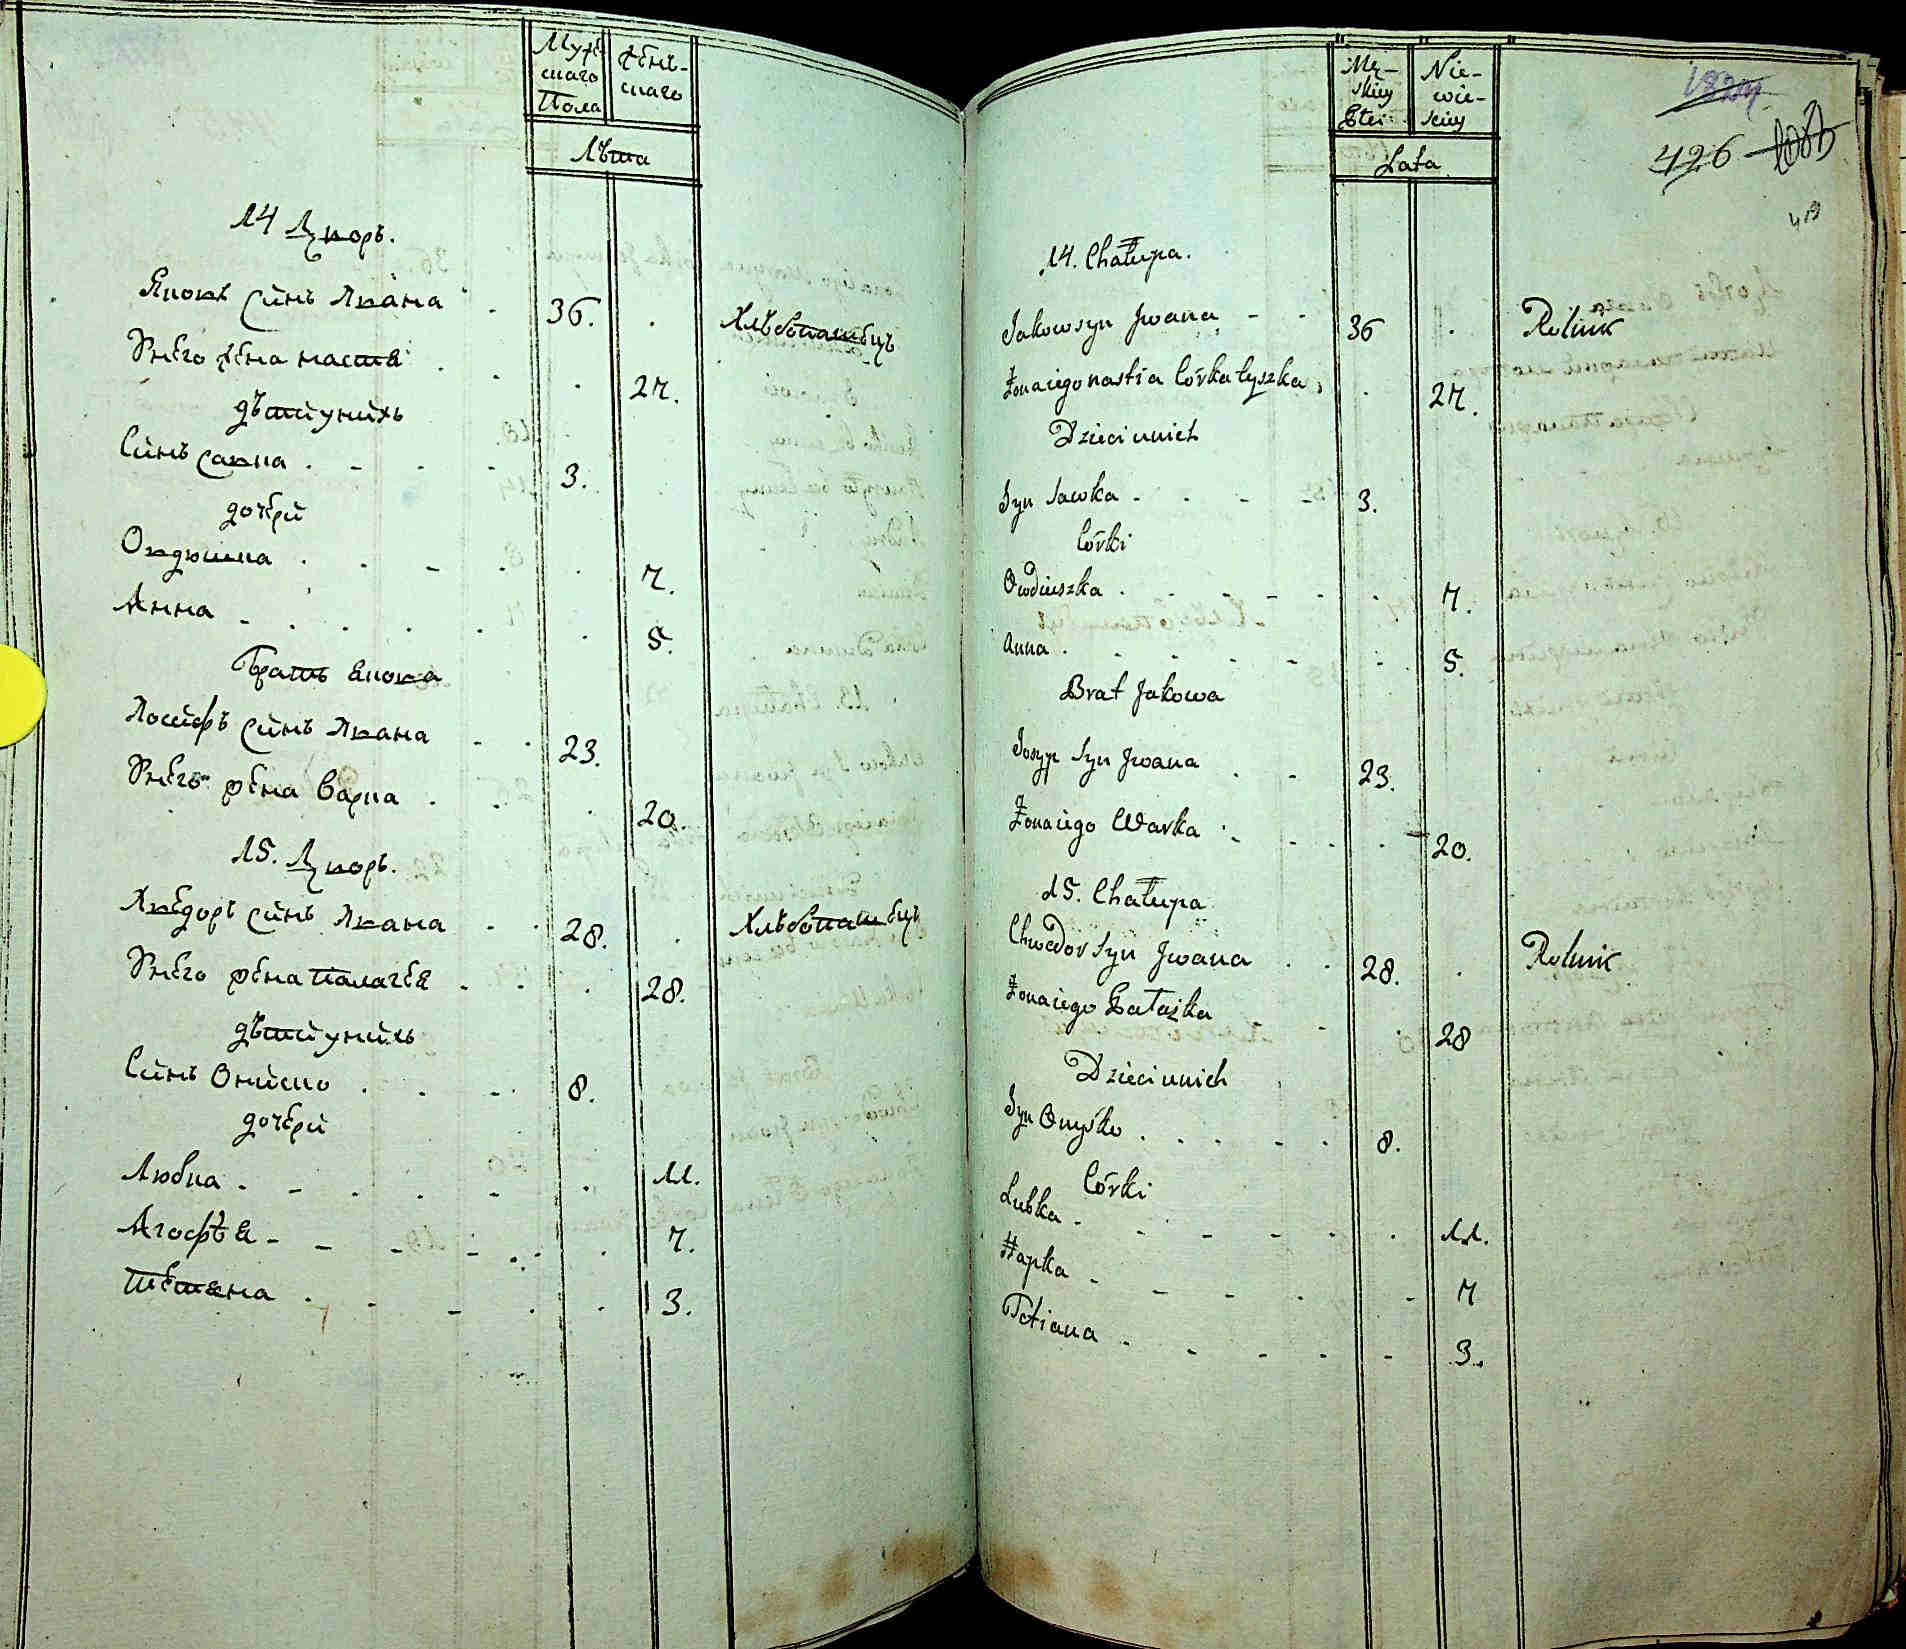 Мужескаго Пола
Женъскаго
Лѣта
14 Дворъ.
Яковъ Синъ Ивана 36. Хлѣбопашецъ
Унего жена настя 27.
дѣти унихъ
Синъ Савка 3.
дочери
Овдюшка 7.
Анна 5.
Братъ Якова
Иосифъ Синъ Ивана 23.
Унего жена Варка 20.
15. Дворъ.
Хведоръ Синъ Ивана 28. Хлѣбопашецъ
Унего жена Палагея 28.
дѣти унихъ
Синъ Онишко 8.
дочери
Любка 11.
Агофѣя 7.
Тетяна 3.
Męskiey Płci
Niewieskiey
Lata
426
14. Chałupa.
Jakow syn Jwana 36 Rolnik
Żona iego nastia Córka łyszka 27.
Dzieci unich
Syn Sawka 3.
Córki
Owdiuszka 7.
Anna 5.
Brat Jakowa
Josyp Syn Jwana 23.
Żona iego Warka 20.
15. Chałupa
Chwedor Syn Jwana 28. Rolnik
Żona iego Pałażka 28
Dzieci unich
Syn Onyśko 8.
Córki
Lubka 11.
Hapka 7
Tetiana 3.